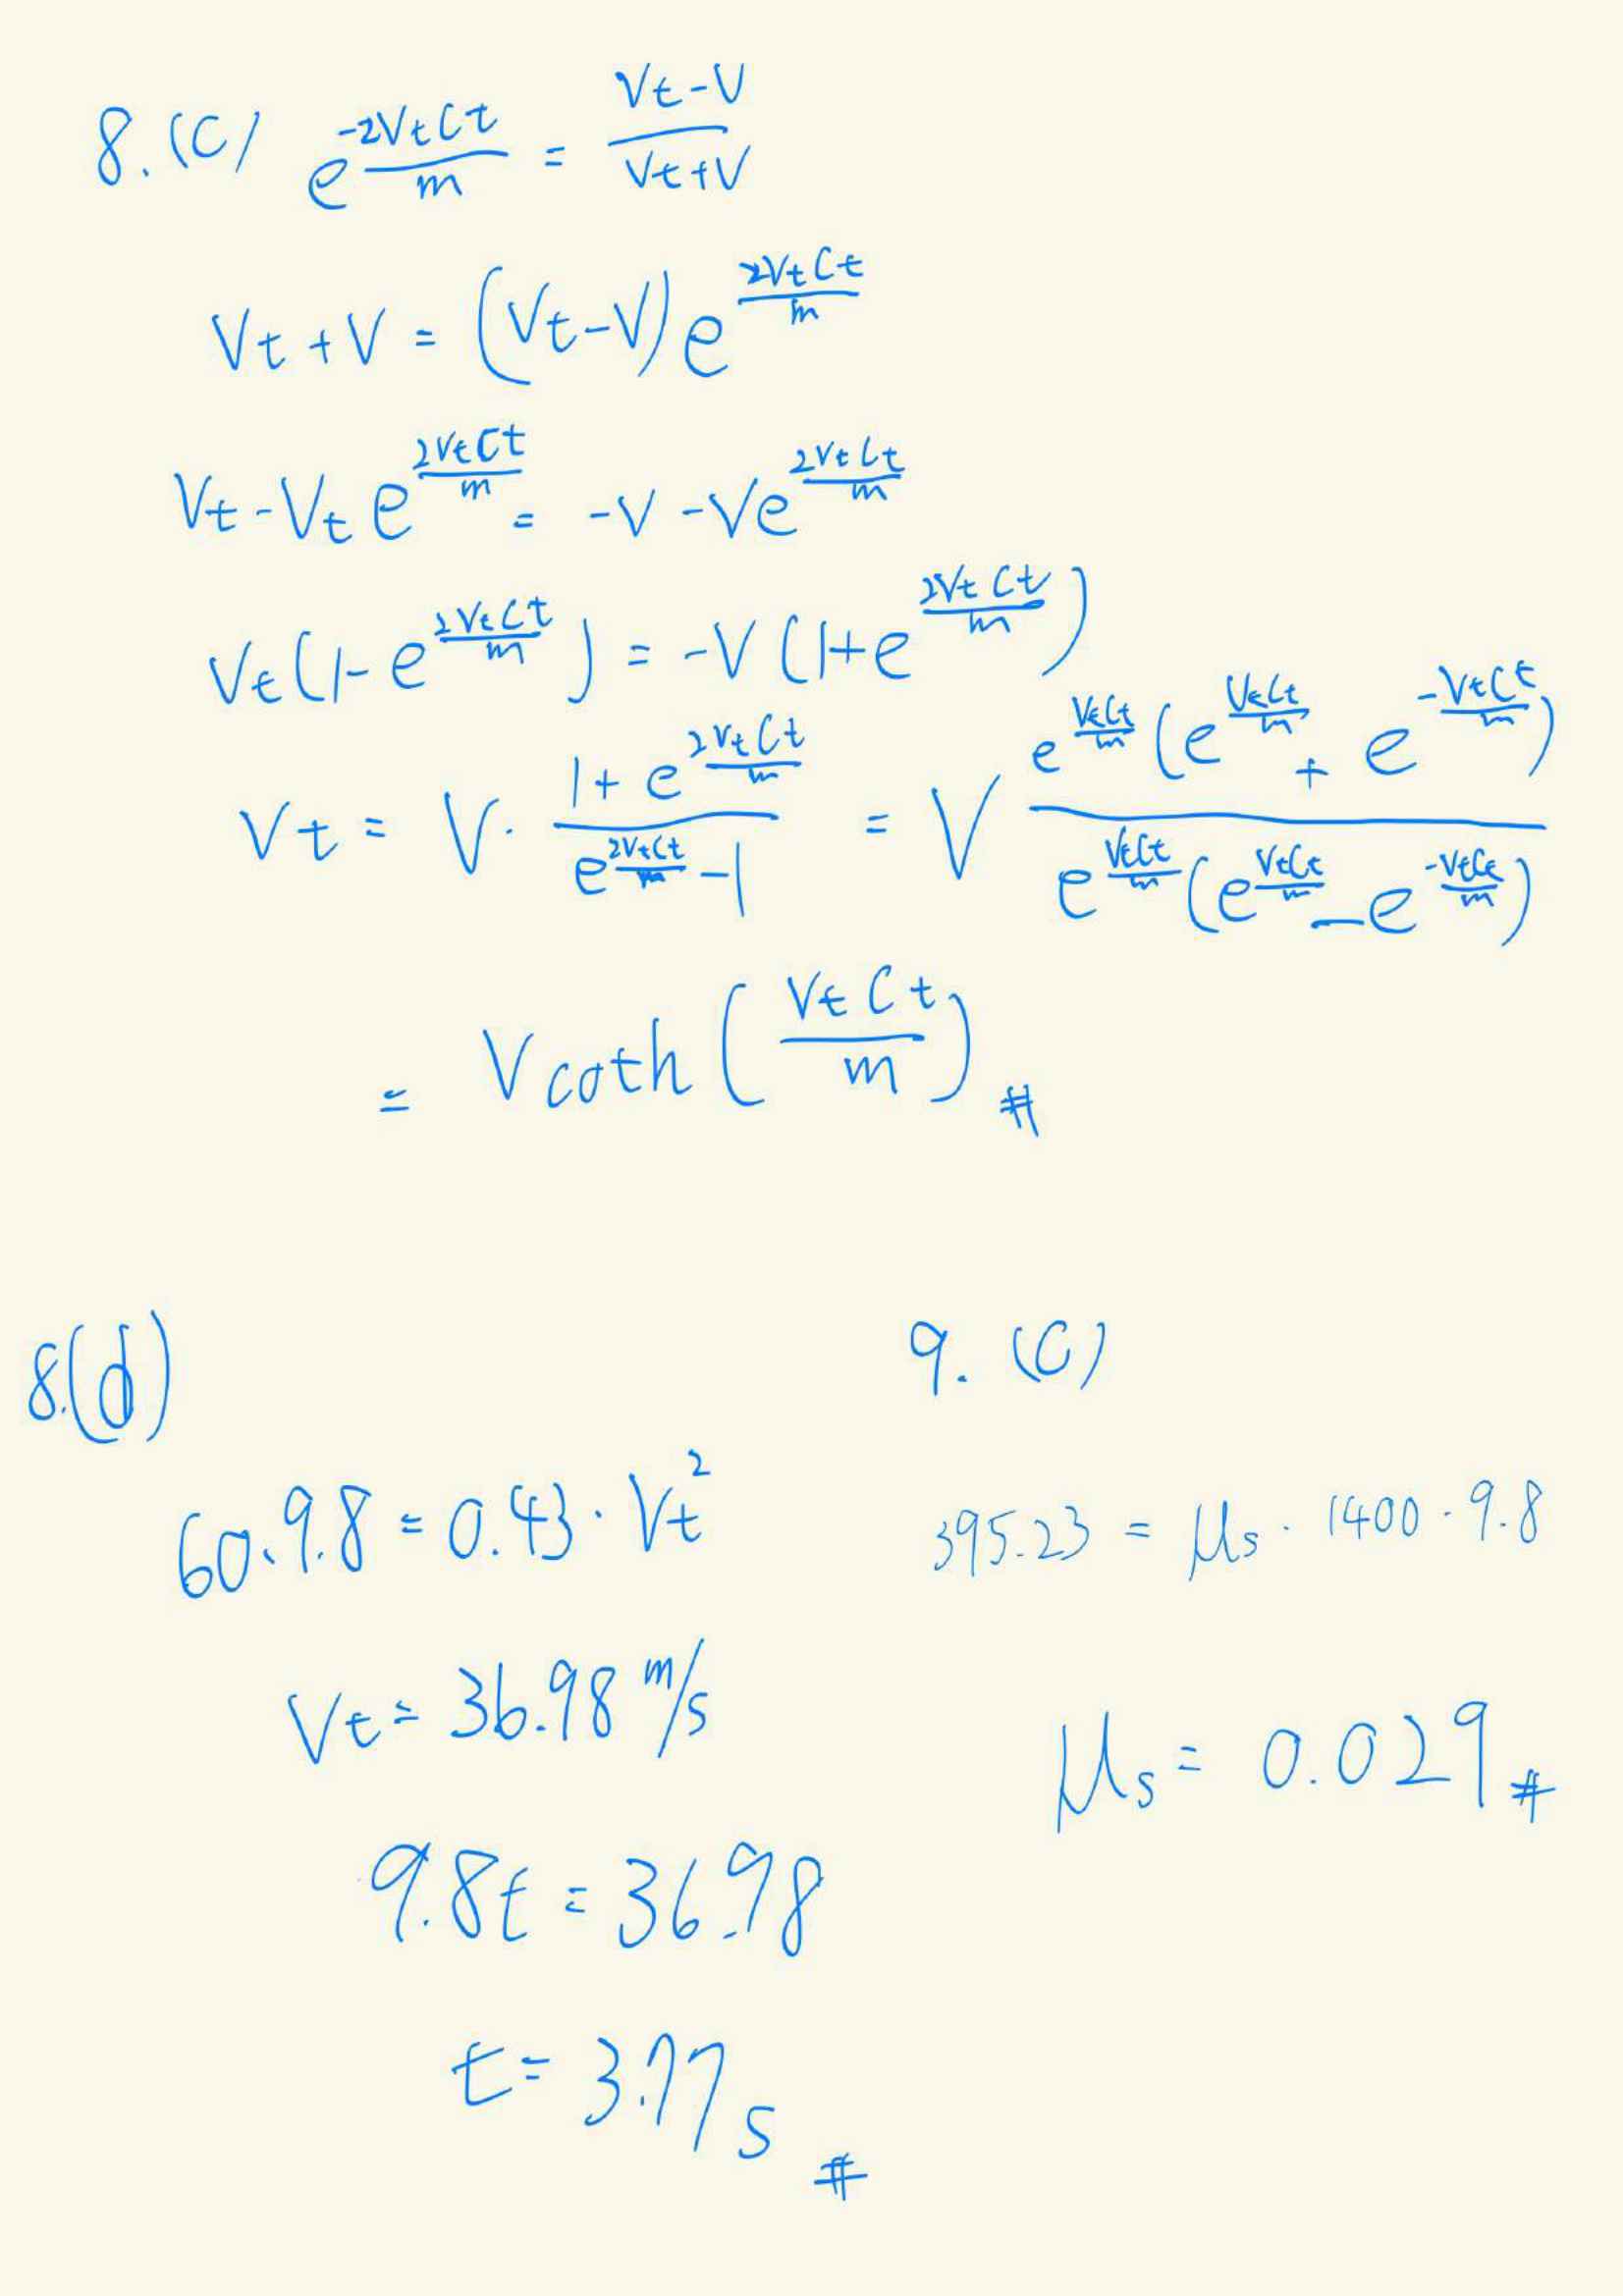 8. (C) e^{\frac{-2V_t C t}{m}} = \frac{V_t - V}{V_t + V}
V_t + V = (V_t - V) e^{\frac{2V_t C t}{m}}
V_t - V_t e^{\frac{2V_t C t}{m}} = -V - V e^{\frac{2V_t C t}{m}}
V_t (1 - e^{\frac{2V_t C t}{m}}) = -V (1 + e^{\frac{2V_t C t}{m}})
V_t = V \cdot \frac{1 + e^{\frac{2V_t C t}{m}}}{e^{\frac{2V_t C t}{m}} - 1} = V \frac{e^{\frac{V_t C t}{m}} (e^{\frac{V_t C t}{m}} + e^{\frac{-V_t C t}{m}})}{e^{\frac{V_t C t}{m}} (e^{\frac{V_t C t}{m}} - e^{\frac{-V_t C t}{m}})}
= V coth (\frac{V_t C t}{m}) #
8.(d)
60 \cdot 9.8 = 0.43 \cdot V_t^2
V_t = 36.98 m/s
9.8t = 36.98
t = 3.77 s #
9. (C)
395.23 = μ_s \cdot 1400 \cdot 9.8
μ_s = 0.029 #